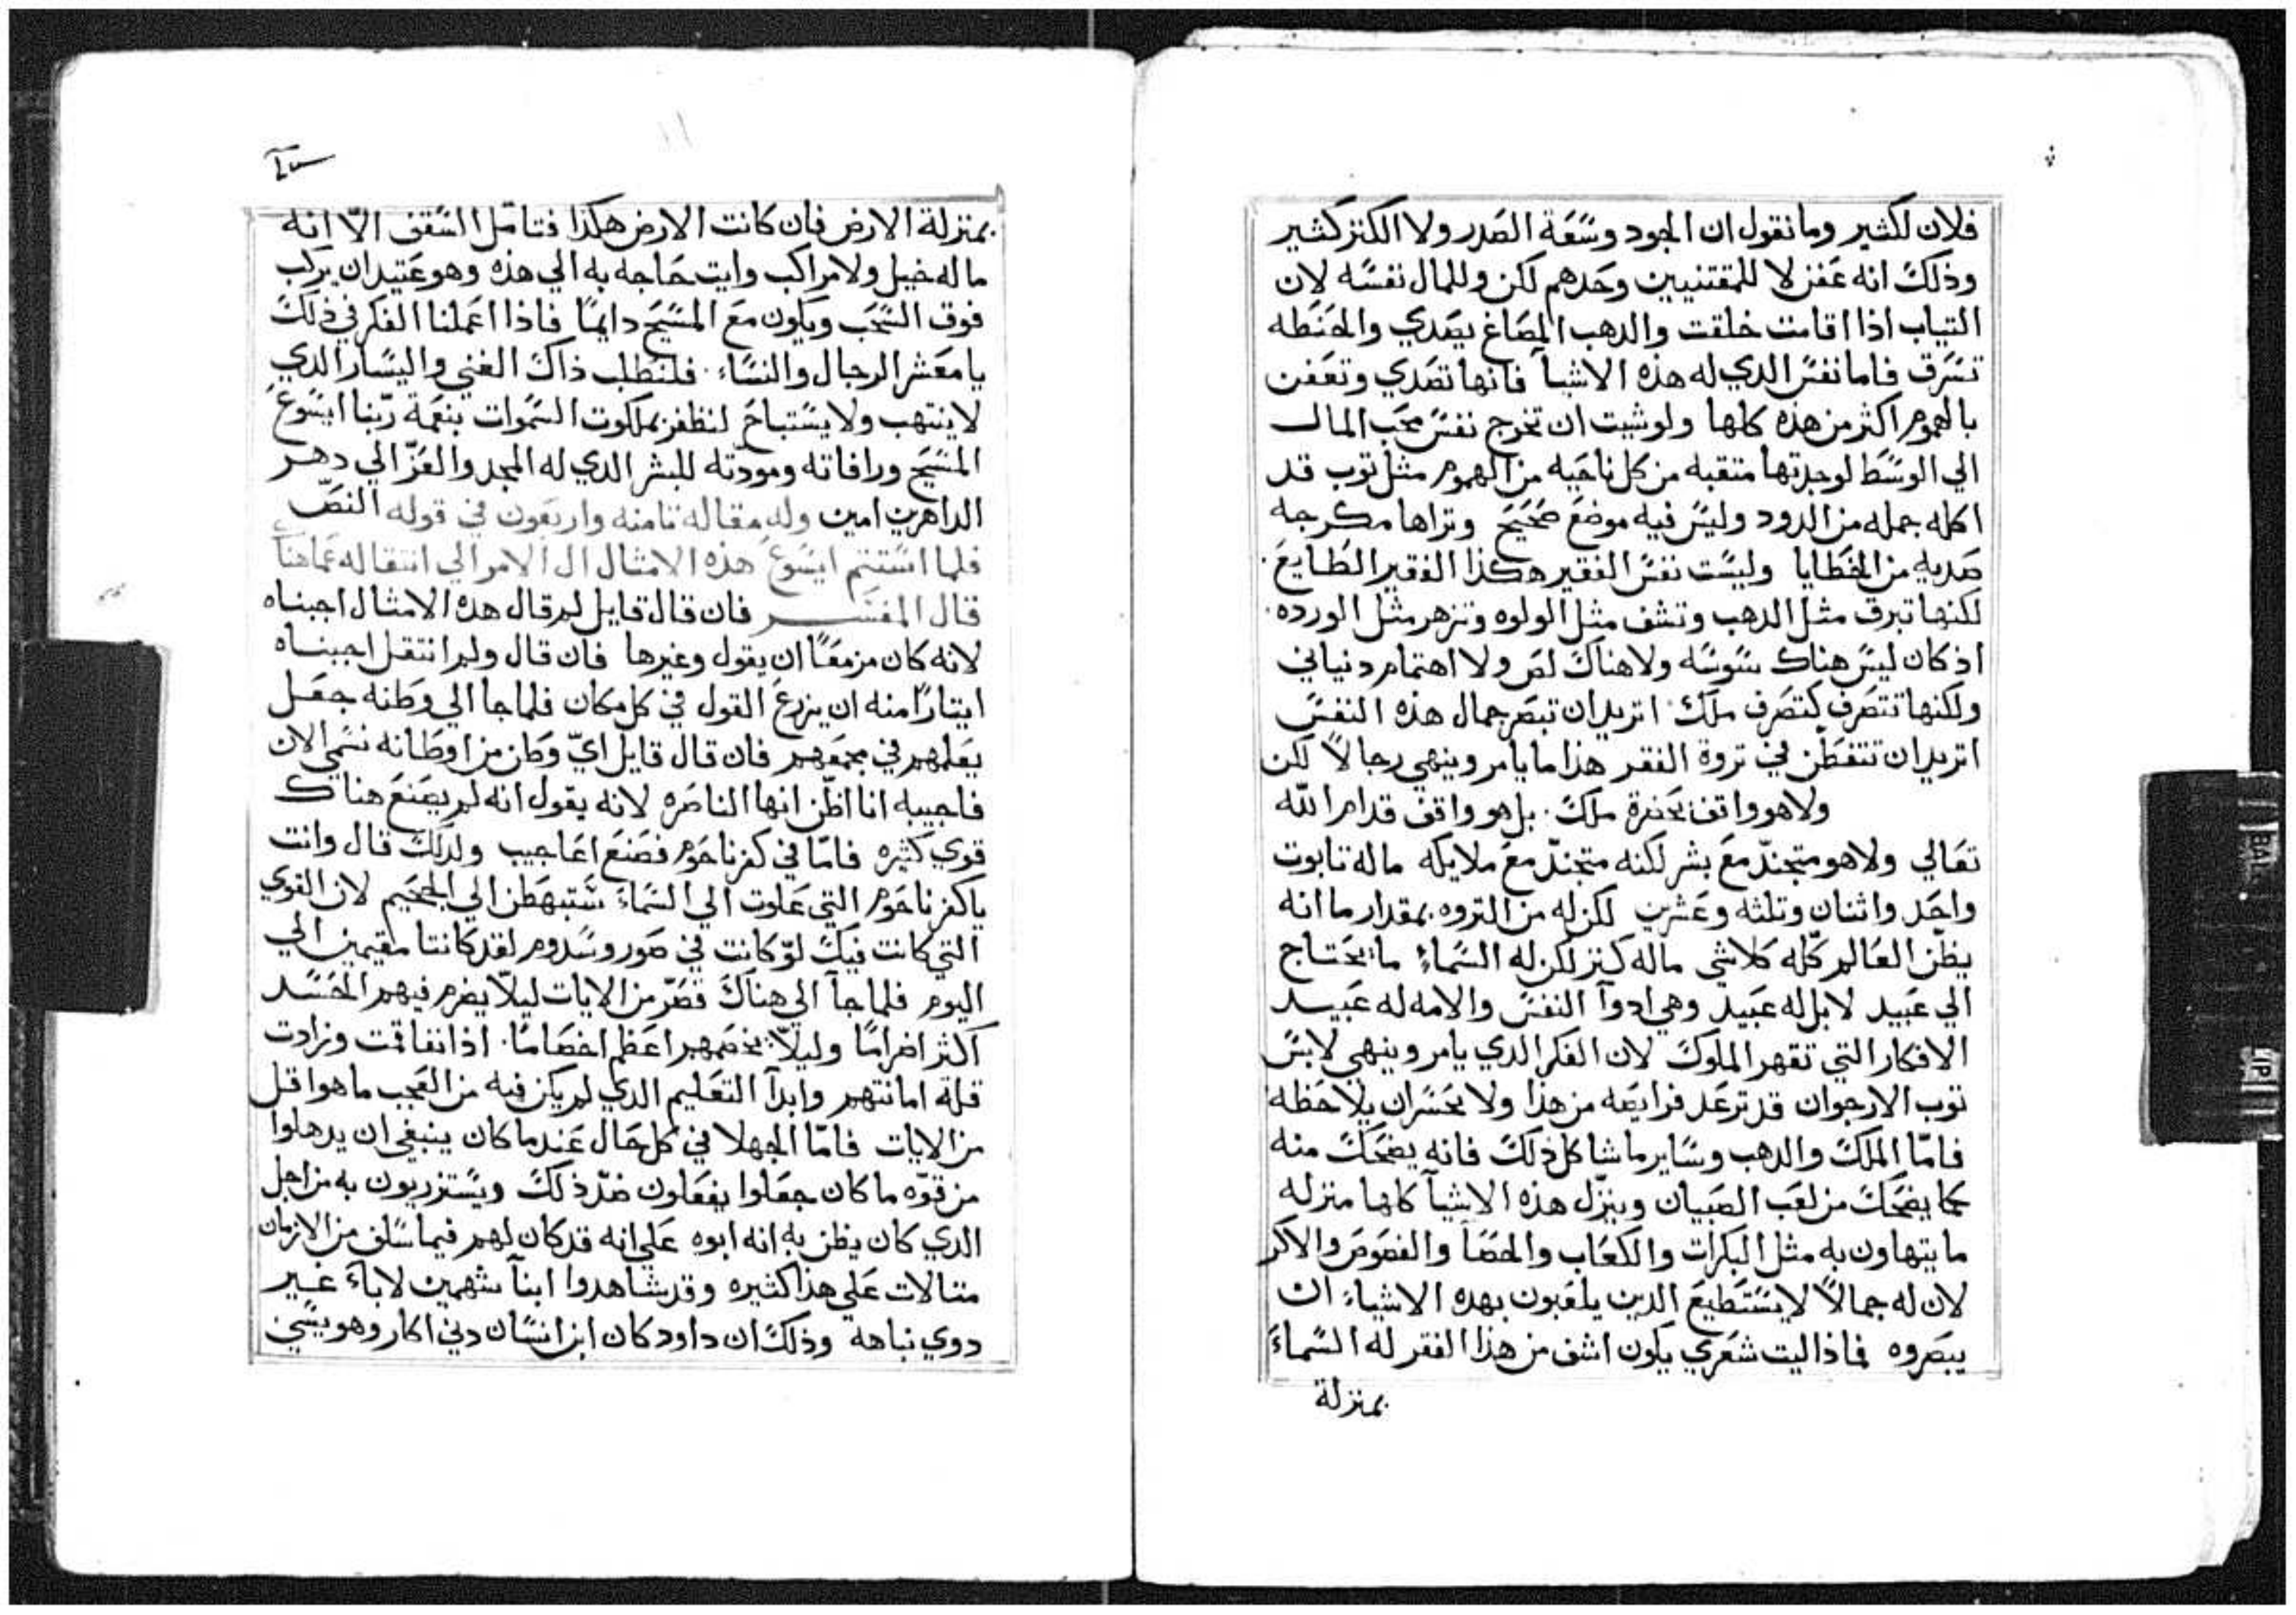 فلان لكثير وما نقول ان الجود وسعة الصدر ولا الكنز كثير
وذلك انه عفن لا للمقتنيين وحدهم لكن وللمال نفسه لان
التياب اذا اقامت خلقت والدهب المصاغ يصدي والحنطه
تسرق فاما نفس الدي له هذه الاشيا فانها تصدي وتعفن
بالهموم اكثر من هذه كلها ولو شيت ان تخرج نفس محب المال
الي الوسط لوجدتها متقبه من كل ناحيه من الهموم مثل توب قد
اكله جمله من الدود وليس فيه موضع صحيح وتراها مكرجه
صديه من الخطايا وليست نفس الفقير هكذا الفقير الطايع
لكنها تبرق مثل الدهب وتشف مثل الولوه وتزهر مثل الورده
اد كان ليس هناك سوسه ولا هناك لص ولا اهتمام دنياني
ولكنها تتصرف كتصرف ملك اتريد ان تبصر جمال هذه النفس
اتريد ان تتفطن في تروة الفقر هذا ما يامر وينهي رجالاً لكن
ولا هو واقف بحضرة ملك بل هو واقف قدام الله
تعالي ولا هو متجندّ مع بشر لكنه متجندّ مع ملايكه ما له تابوت
واحد واثنان وتلثه وعشرين لكن له من التروه بمقدار ما انه
يظن العالم كله كلاشي ماله كنز لكن له السماء ما يحتاج
الي عبيد لا بل له عبيد وهي ادوآ النفس والامه له عبيد
الافكار التي تقهر الملوك لان الفكر الدي يامر وينهي لابس
توب الارجوان قد ترعد فرايصه من هذا ولا يحسران يلاحظه
فامّا الملك والدهب وساير ما شاكل ذلك فانه يضحك منه
كما يضحك من لعب الصبيان وينزّل هذه الاشيآ كلها منزله
ما يتهاون به مثل البكرات والكعاب والحصا والفصوص والاكر
لان له جمالاً لا يستطيع الدين يلعبون بهده الاشياء ان
يبصروه فماذا ليت شعري يكون اشف من هذا الفقر له السماء
بمنزلة
بمنزلة الارض فان كانت الارض هكذا فتامّل السقف الّا انه
ما له خيل ولا مراكب وايت حاجه به الي هذه وهو عتيد ان يركب
فوق السحب ويكون مع المسيح دايمًا فاذا اعملنا الفكر في ذلك
يا معشر الرجال والنساء فلنطلب ذاك الغني واليسار الدي
لا ينتهب ولا يستباح لنظفز بملكوت السموات بنعمة ربّنا ايسوع
المسيح ورافاته ومودّته للبشر الدي له المجد والعزّ الي دهر
الداهرين امين وله مقاله تامنه واربعون في قوله النصّ
فلما استتم ايسوع هذه الامثال ال الامر الي انتقاله عماهنا
قال المفسر فان قال قايل لم قال هده الامثال اجبناه
لانه كان مزمعًا ان يقول وغيرها فان قال ولم انتقل اجبناه
ايتارًا منه ان يزرع القول في كل مكان فلما جا الي وطنه جعل
يعلمهم في مجمعهم فان قال قايل ايّ وطن من اوطانه نسمي الان
فاجيبه انا اظن انها الناصره لانه يقول انه لم يصنع هناك
قوي كثيره فامّا في كفرناحوم فصنع اعاجيب ولدلك قال وانت
يا كفرناحوم التي علوت الي السماء ستبهطن الي الجحيم لان القوي
التي كانت فيك لو كانت في صور وسدوم لقد كانتا مقيمين الي
اليوم فلما جآ الي هناك قصّر من الايات ليلّا يضرم فيهم الحسد
اكثر اضرامًا وليلّا يخصمهم اعظم اخصامًا اذا تفاقمت وزادت
قلة امانتهم وابدآ التعليم الدي لم يكن فيه من العجب ما هو اقل
من الايات فامّا الجهلا في كل حال عندما كان ينبغي ان يدهلوا
من قوّه ما كان جعلوا يفعلون ضدّ ذلك ويستزريون به من اجل
الدي كان يظن به انه ابوه علي انه قد كان لهم فيما سلف من الازمان
متالات علي هذا كثيره وقد شاهدوا ابنآ شهمين لاباء غير
دوي نباهه وذلك ان داود كان ابن انسان دني اكار وهو يسّي